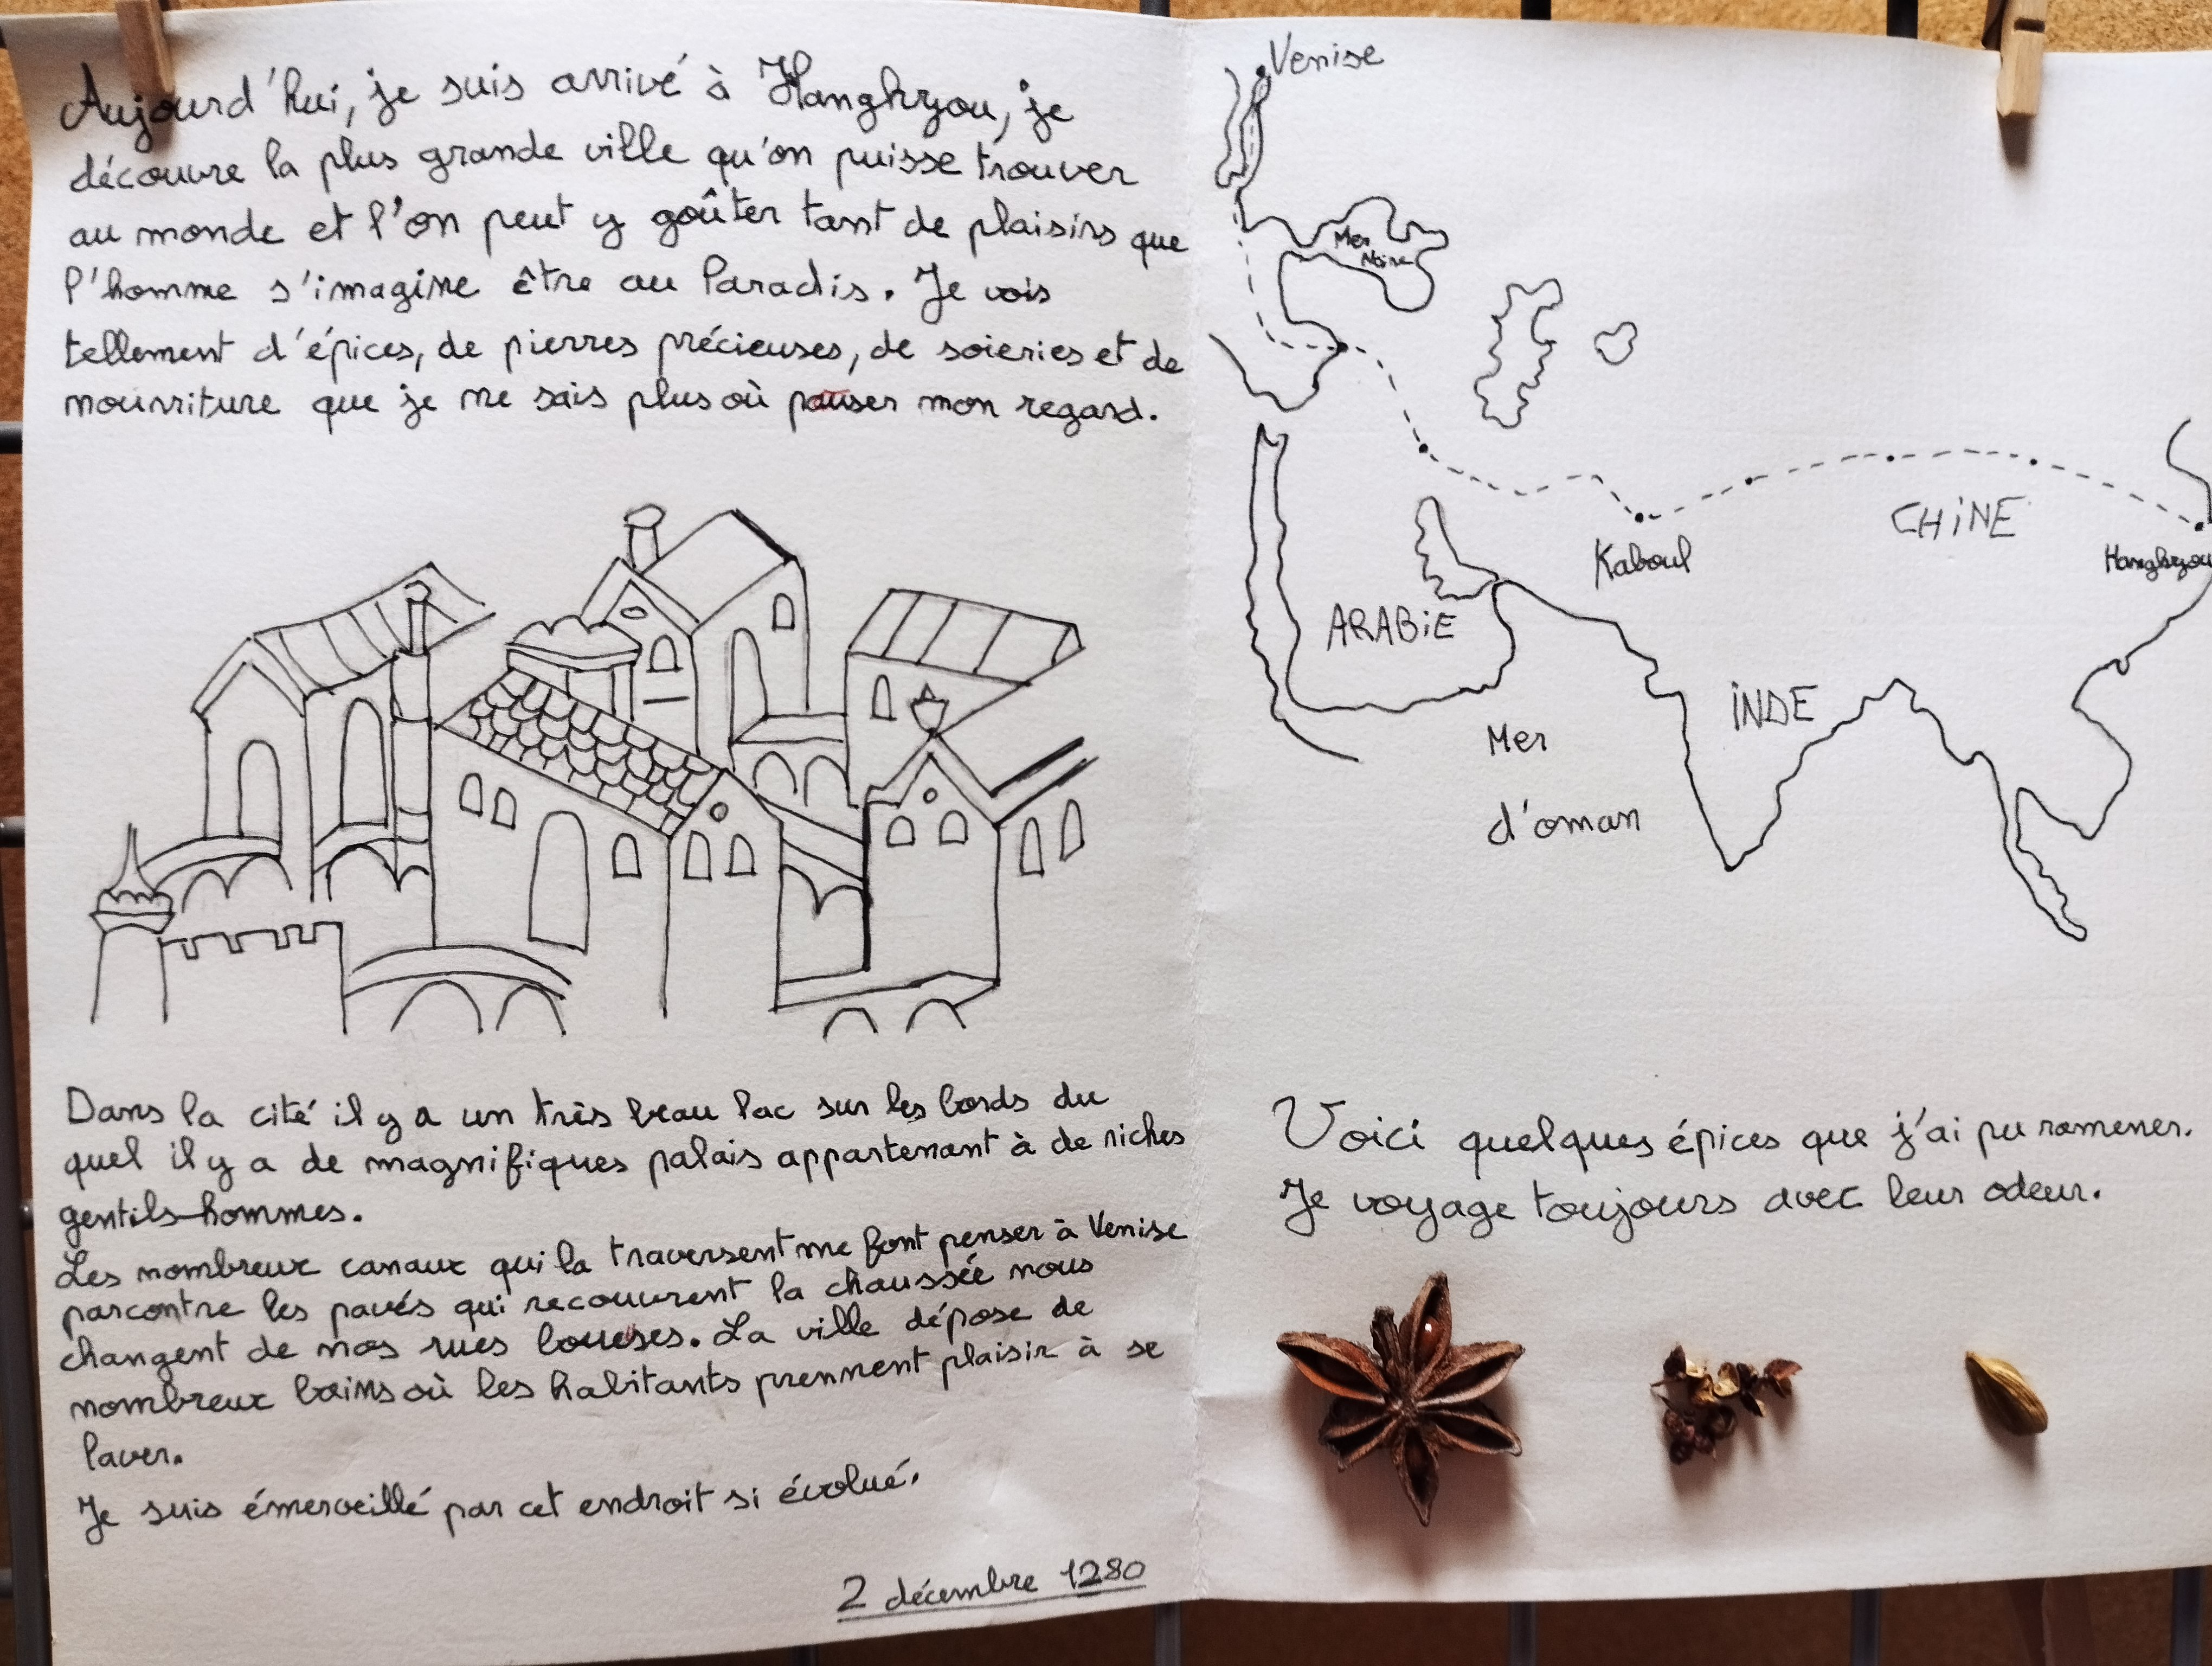 Aujourd'hui, je suis arrivé à Hanghzou, je
découvre la plus grande ville qu'on puisse trouver
au monde et l'on peut y goûter tant de plaisirs que
l'homme s'imagine être au Paradis. Je vois
tellement d'épices, de pierres précieuses, de soieries et de
nourriture que je ne sais plus où pauser mon regard.
Dans la cité il y a un très beau lac sur les bords du
quel il y a de magnifiques palais appartenant à de riches
gentils-hommes.
Les nombreux canaux qui la traversent me font penser à Venise
parcontre les pavés qui recouvrent la chaussée nous
changent de nos rues boueuses. La ville dépose de
nombreux bains où les habitants prennent plaisir à se
laver.
Je suis émerveillé par cet endroit si évolué.
2 décembre 1280
Venise
Mer
Noire
CHiNE
Kaboul
Hanghzou
ARABiE
iNDE
Mer
d'oman
Voici quelques épices que j'ai pu ramener.
Je voyage toujours avec leur odeur.